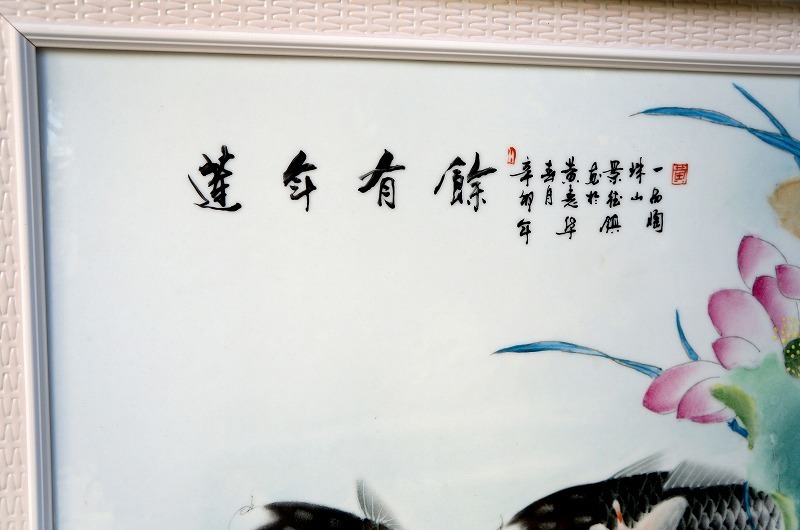 蓮年有餘
辛卯年
春月
黄意華
画於
景德鎮
珠山
一品陶
黄